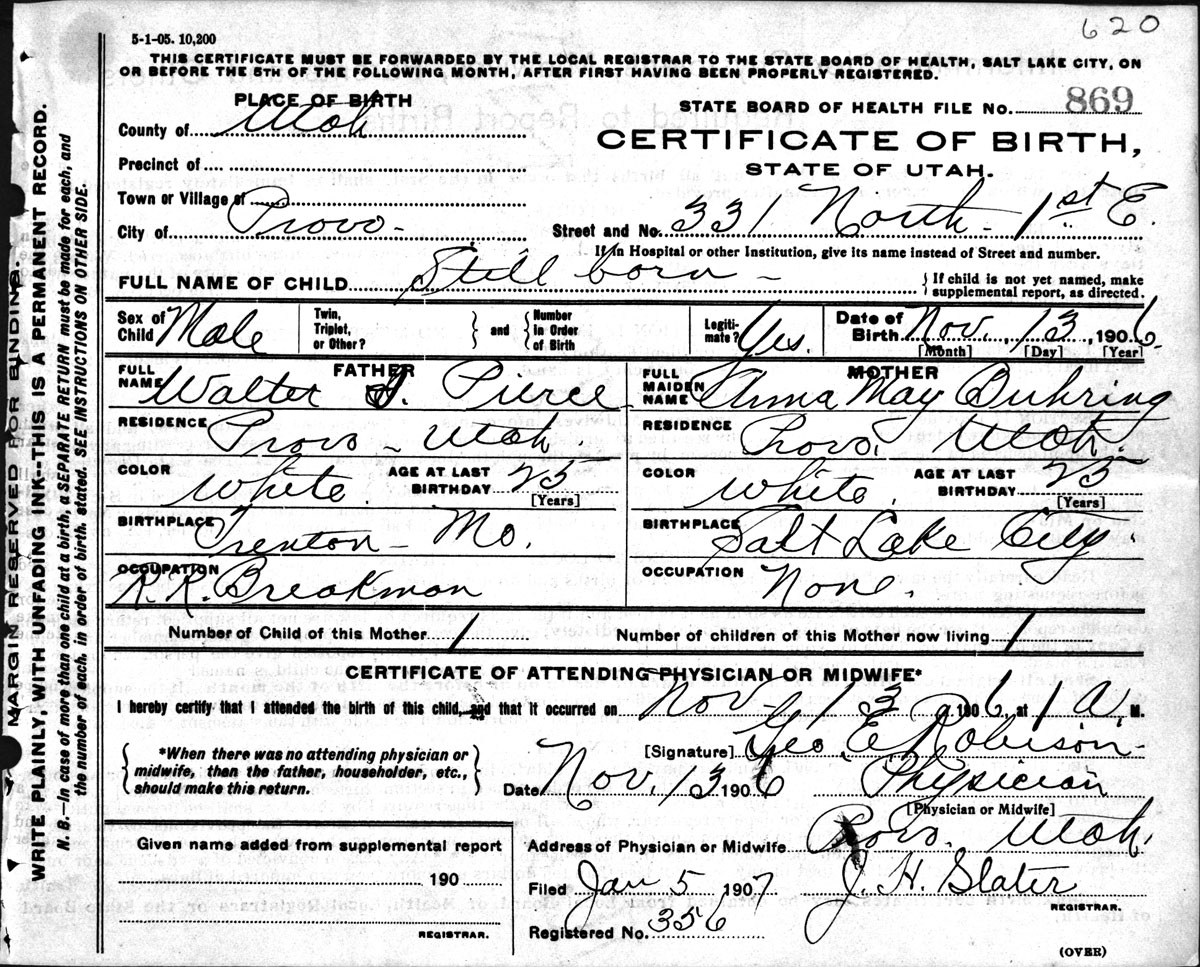 620
5-1-05. 10,200
THIS CERTIFICATE MUST BE FORWARDED BY THE LOCAL REGISTRAR TO THE STATE BOARD OF HEALTH, SALT LAKE CITY, ON
OR BEFORE THE 5TH OF THE FOLLOWING MONTH, AFTER FIRST HAVING BEEN PROPERLY REGISTERED.
PLACE OF BIRTH
STATE BOARD OF HEALTH FILE No. 869
County of Utah
CERTIFICATE OF BIRTH,
Precinct of
STATE OF UTAH.
Town or Village of
City of Provo-
Street and No. 331 North 1st E.
If in Hospital or other Institution, give its name instead of Street and number.
FULL NAME OF CHILD Still born - { If child is not yet named, make
supplemental report, as directed.
Sex of Child Male Twin, Triplet, or Other? } and { Number In Order of Birth Legiti-mate? Yes. Date of Birth Nov. 13, 1906
[Month] [Day] [Year]
FATHER
FULL NAME Walter J. Pierce
RESIDENCE Provo - Utah.
COLOR White. AGE AT LAST BIRTHDAY 25
[Years]
BIRTHPLACE Trenton - Mo.
OCCUPATION R.R. Breakman
MOTHER
FULL MAIDEN NAME Anna May Duhring
RESIDENCE Provo. Utah.
COLOR White. AGE AT LAST BIRTHDAY 25
[Years]
BIRTHPLACE Salt Lake City.
OCCUPATION None.
Number of Child of this Mother 1 Number of children of this Mother now living 1
CERTIFICATE OF ATTENDING PHYSICIAN OR MIDWIFE*
I hereby certify that I attended the birth of this child, and that it occurred on Nov- 13 1906, at 1 A. M.
{ *When there was no attending physician or
midwife, then the father, householder, etc.,
should make this return. }
[Signature] Geo. E. Robison-
Date Nov. 13 1906 Physician
[Physician or Midwife]
Address of Physician or Midwife Provo. Utah.
Filed Jan 5 1907 J. H. Slater
REGISTRAR.
Registered No. 356
Given name added from supplemental report
190
REGISTRAR.
(OVER)
MARGIN RESERVED FOR BINDING.
WRITE PLAINLY, WITH UNFADING INK--THIS IS A PERMANENT RECORD.
N.B.--In case of more than one child at a birth, a SEPARATE RETURN must be made for each, and
the number of each, in order of birth, stated. SEE INSTRUCTIONS ON OTHER SIDE.